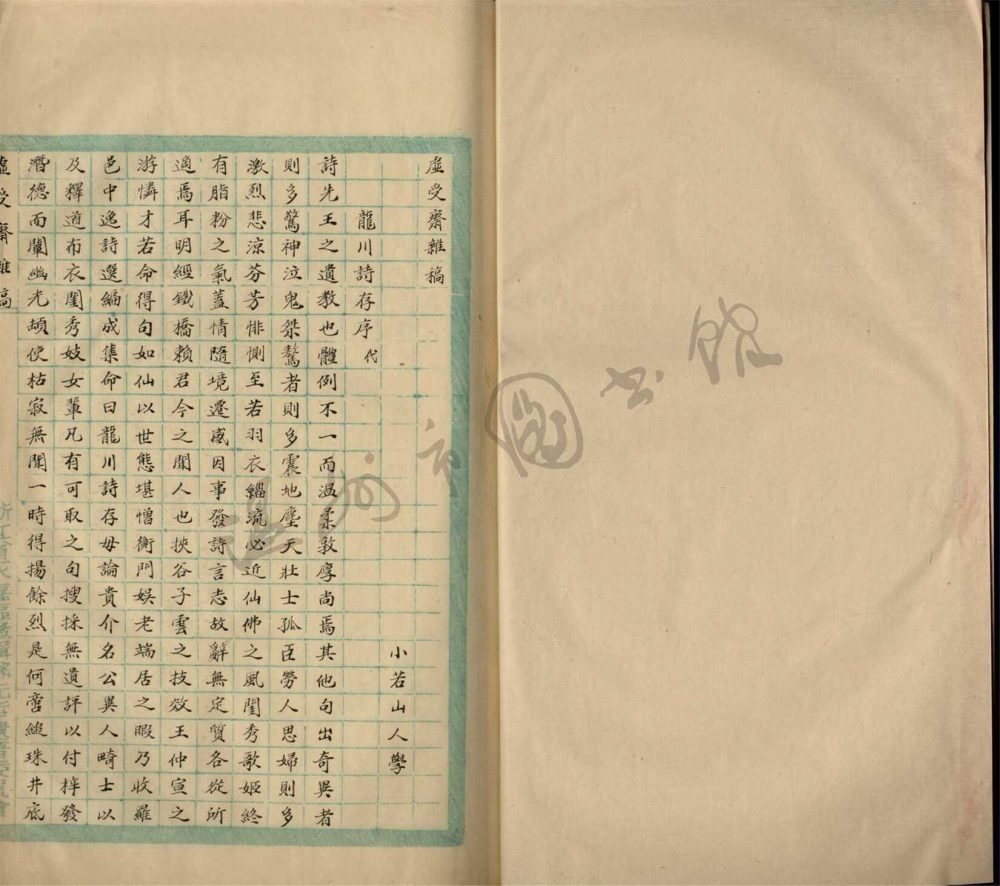 虛受齋雜稿
小若山人學
龍川詩存序 代
詩先王之遺教也體例不一而温柔敦厚尚焉其他句出奇異者
則多驚神泣鬼桀驁者則多震地塵天壯士孤臣勞人思婦則多
激烈悲涼芬芳悱惻至若羽衣緇流必近仙佛之風閨秀歌姬終
有脂粉之氣蓋情隨境遷感因事發詩言志故辭無定質各從所
適焉耳明經鐵橋賴君今之聞人也挾谷子雲之技效王仲宣之
游憐才若命得句如仙以世態堪憎衡門娛老端居之暇乃收羅
邑中逸詩選編成集命曰龍川詩存毋論貴介名公異人畸士以
及釋道布衣閨秀妓女輩凡有可取之句搜採無遺評以付梓發
潛德而闡幽光頡使枯寂無聞一時得揚餘烈是何啻縋珠井底
虛受齋雜稿
溫州市圖書館